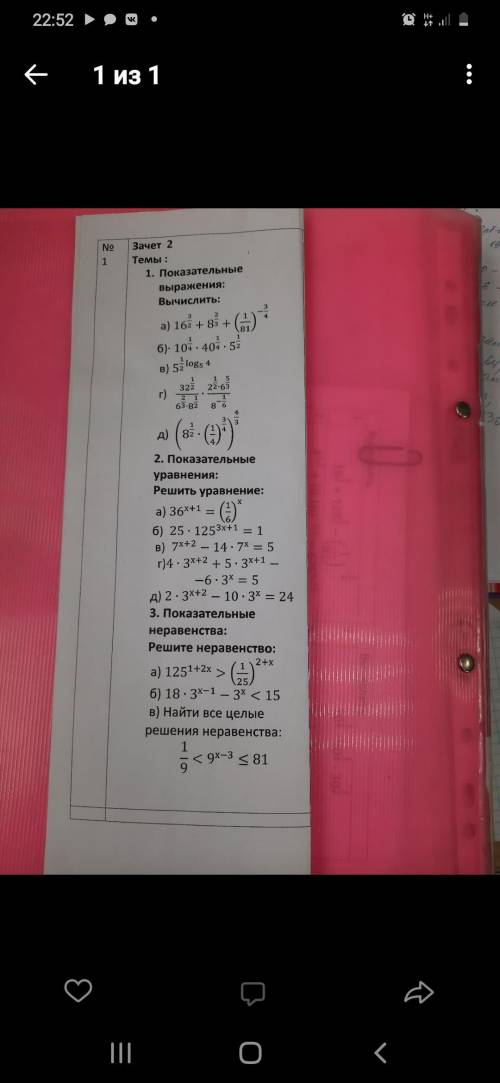 22:52
1 из 1
№ Зачет 2
1 Темы :
1. Показательные
выражения:
Вычислить:
а) 16^(3/2) + 8^(2/3) + (1/81)^(-3/4)
б)· 10^(1/4) · 40^(1/4) · 5^(1/2)
в) 5^(1/2 log₅ 4)
г) 32^(1/2) / (6^(2/3)·8^(1/2)) · (2^(1/2)·6^(5/3)) / 8^(-1/6)
д) (8^(1/2) · (1/4)^(3/4))^(4/3)
2. Показательные
уравнения:
Решить уравнение:
а) 36^(x+1) = (1/6)^x
б) 25 · 125^(3x+1) = 1
в) 7^(x+2) − 14 · 7^x = 5
г)4 · 3^(x+2) + 5 · 3^(x+1) −
−6 · 3^x = 5
д) 2 · 3^(x+2) − 10 · 3^x = 24
3. Показательные
неравенства:
Решите неравенство:
а) 125^(1+2x) > (1/25)^(2+x)
б) 18 · 3^(x−1) − 3^x < 15
в) Найти все целые
решения неравенства:
1/9 < 9^(x−3) ≤ 81